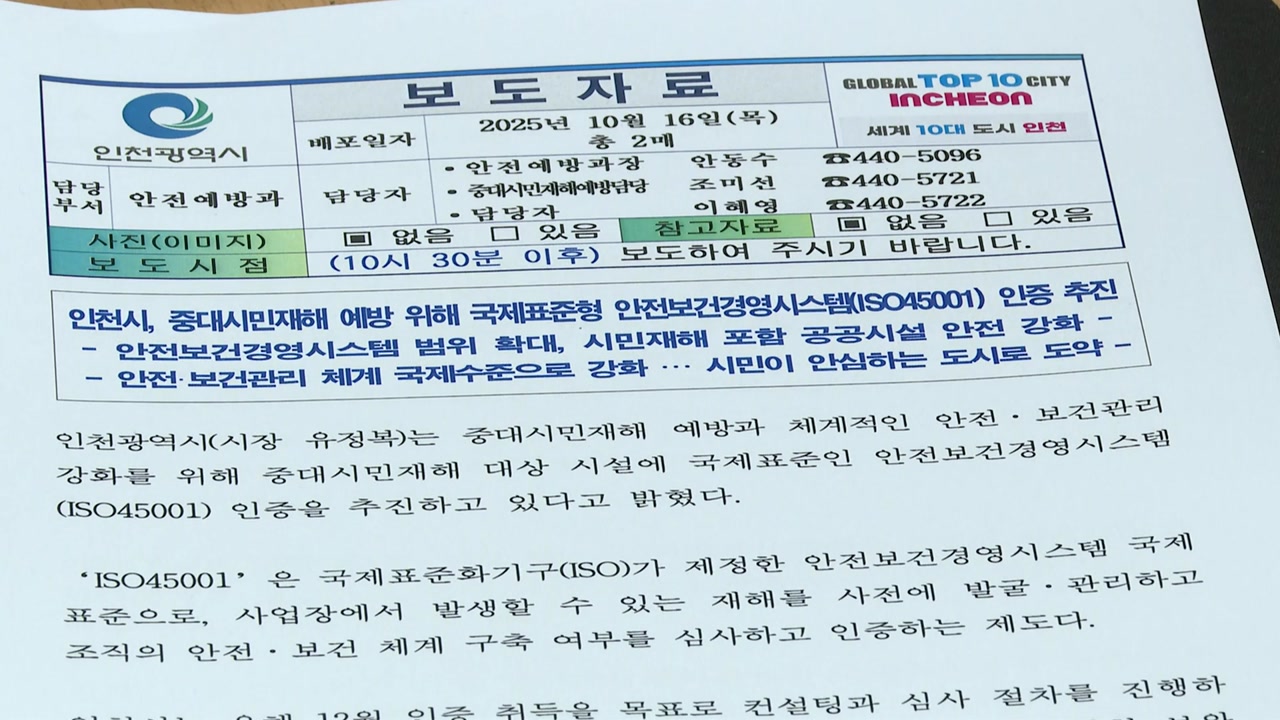 보도자료
GLOBAL TOP 10 CITY
INCHEON
세계 10대 도시 인천
인천광역시
배포일자
2025년 10월 16일(목)
총 2매
담당
부서
안전예방과
담당자
• 안전예방과장 안동수 ☎440-5096
• 중대시민재해예방담당 조미선 ☎440-5721
• 담당자 이혜영 ☎440-5722
사진(이미지) ▣ 없음 □ 있음 참고자료 ▣ 없음 □ 있음
보도시점 (10시 30분 이후) 보도하여 주시기 바랍니다.
인천시, 중대시민재해 예방 위해 국제표준형 안전보건경영시스템(ISO45001) 인증 추진
- 안전보건경영시스템 범위 확대, 시민재해 포함 공공시설 안전 강화 -
- 안전·보건관리 체계 국제수준으로 강화 … 시민이 안심하는 도시로 도약 -
인천광역시(시장 유정복)는 중대시민재해 예방과 체계적인 안전·보건관리
강화를 위해 중대시민재해 대상 시설에 국제표준인 안전보건경영시스템
(ISO45001) 인증을 추진하고 있다고 밝혔다.
‘ISO45001’ 은 국제표준화기구(ISO)가 제정한 안전보건경영시스템 국제
표준으로, 사업장에서 발생할 수 있는 재해를 사전에 발굴·관리하고
조직의 안전·보건 체계 구축 여부를 심사하고 인증하는 제도다.
12월 인증 취득을 목표로 컨설팅과 심사 절차를 진행하